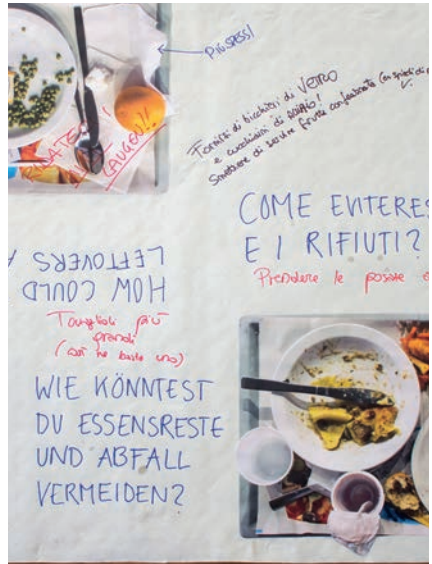 PIÙ SPESSI
Fornirsi di bicchieri di VETRO
e cucchiaini di
Smettere di servire frutta confezionata
COME EVITERES
E I RIFIUTI?
Prendere le posate
HOW COULD
LEFTOVERS A
Tovaglioli più
grandi
(così ne basta uno)
WIE KÖNNTEST
DU ESSENSRESTE
UND ABFALL
VERMEIDEN?